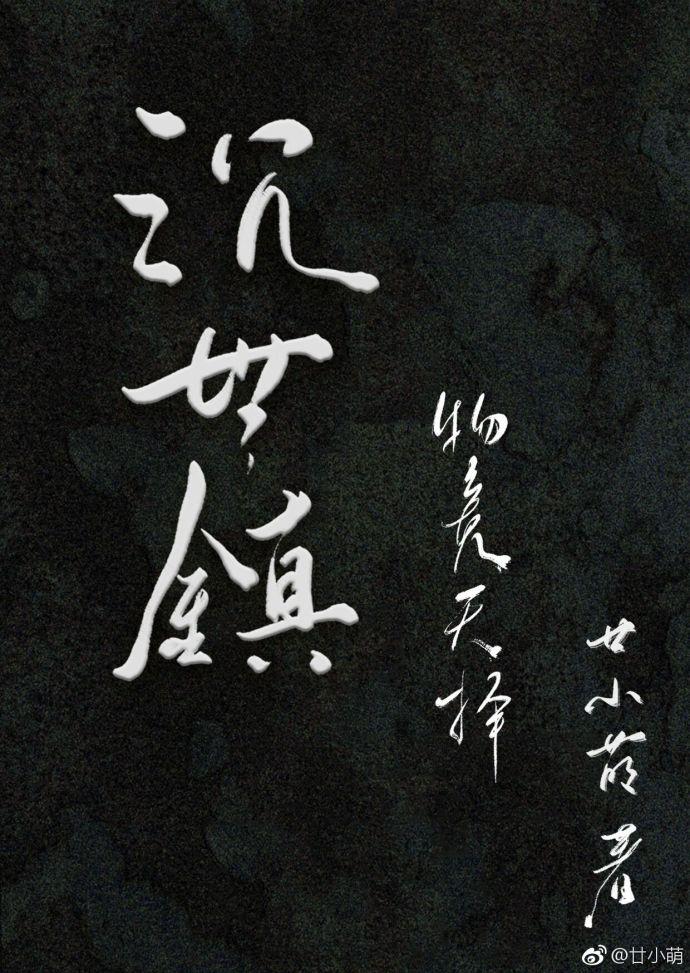 沉世镇
物竞天择
廿小萌 著
@廿小萌